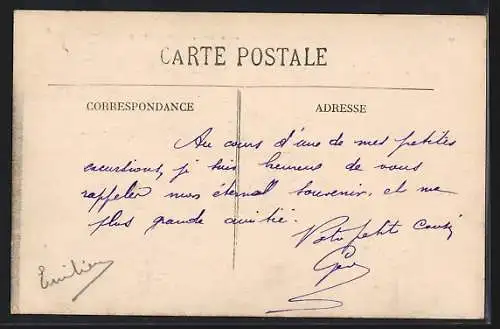 CARTE POSTALE
CORRESPONDANCE ADRESSE
Au cours d'une de mes petites
excursions, je suis heureux de vous
rappeler mon éternel souvenir, et ma
plus grande amitié.
Votre petit cousin
Emilien